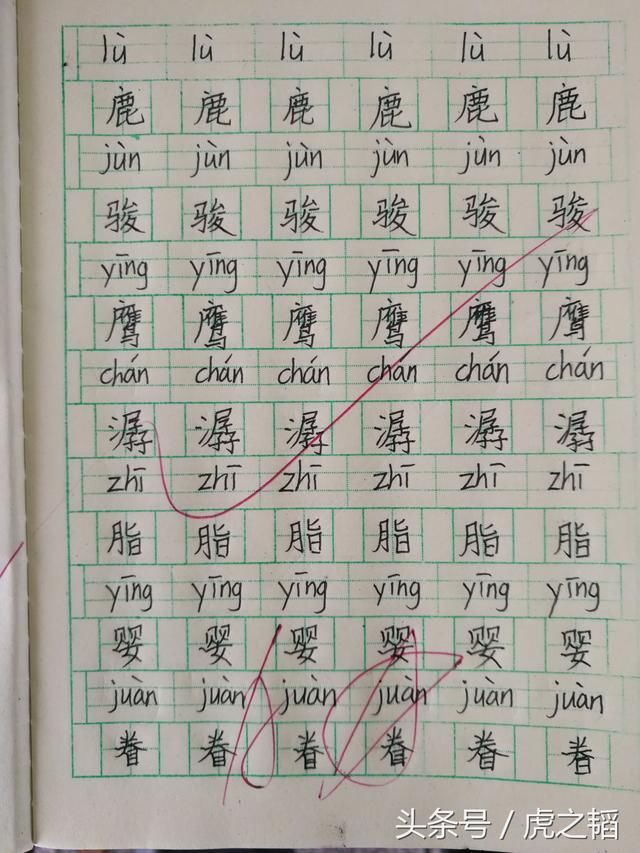 lù lù lù lù lù lù
鹿 鹿 鹿 鹿 鹿 鹿
jùn jùn jùn jùn jùn jùn
骏 骏 骏 骏 骏 骏
yīng yīng yīng yīng yīng yīng
鹰 鹰 鹰 鹰 鹰 鹰
chán chán chán chán chán chán
潺 潺 潺 潺 潺 潺
zhī zhī zhī zhī zhī zhī
脂 脂 脂 脂 脂 脂
yīng yīng yīng yīng yīng yīng
婴 婴 婴 婴 婴 婴
juàn juàn juàn juàn juàn juàn
眷 眷 眷 眷 眷 眷
头条号 / 虎之韬